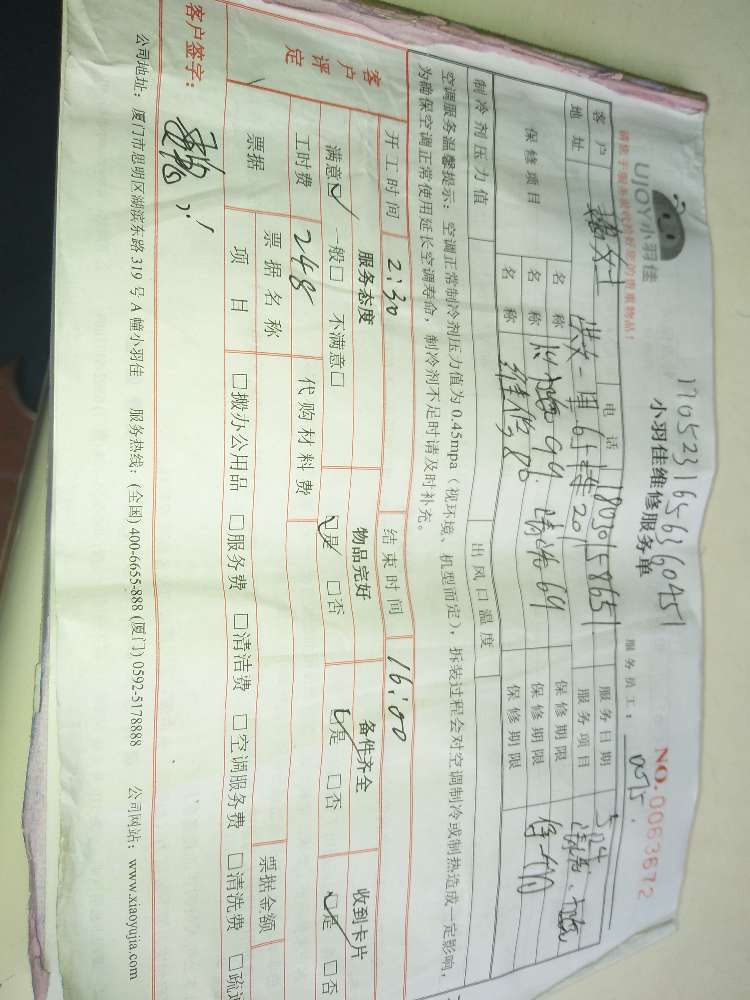 1705231656360451
UJOY小羽佳
请您于服务前收检好您的贵重物品!
小羽佳维修服务单
NO.0063672
服务员工: 0075
客户 电话 18030158651 服务日期
地址 洪文一里 服务项目
保修项目 名称 保修期限
名称 94 清洗 64 保修期限
名称 维修 80 保修期限
制冷剂压力值 出风口温度
空调服务温馨提示:空调正常制冷剂压力值为 0.45mpa(视环境、机型而定),拆装过程会对空调制冷或制热造成一定影响,
为确保空调正常使用延长空调寿命,制冷剂不足时请及时补充。
开工时间 2:30 结束时间 16:00
客户评定 服务态度 物品完好 备件齐全 收到卡片
满意☑ 一般□ 不满意□ ☑是 □否 ☑是 □否 ☑是 □否
工时费 248 代购材料费
票据 票据名称 票据金额
项目 □搬办公用品 □服务费 □清洁费 □空调服务费 □清洗费 □疏通
客户签字:
公司地址:厦门市思明区湖滨东路 319 号 A 幢小羽佳 服务热线:(全国) 400-6655-888 (厦门) 0592-5178888 公司网站:www.xiaoyujia.com